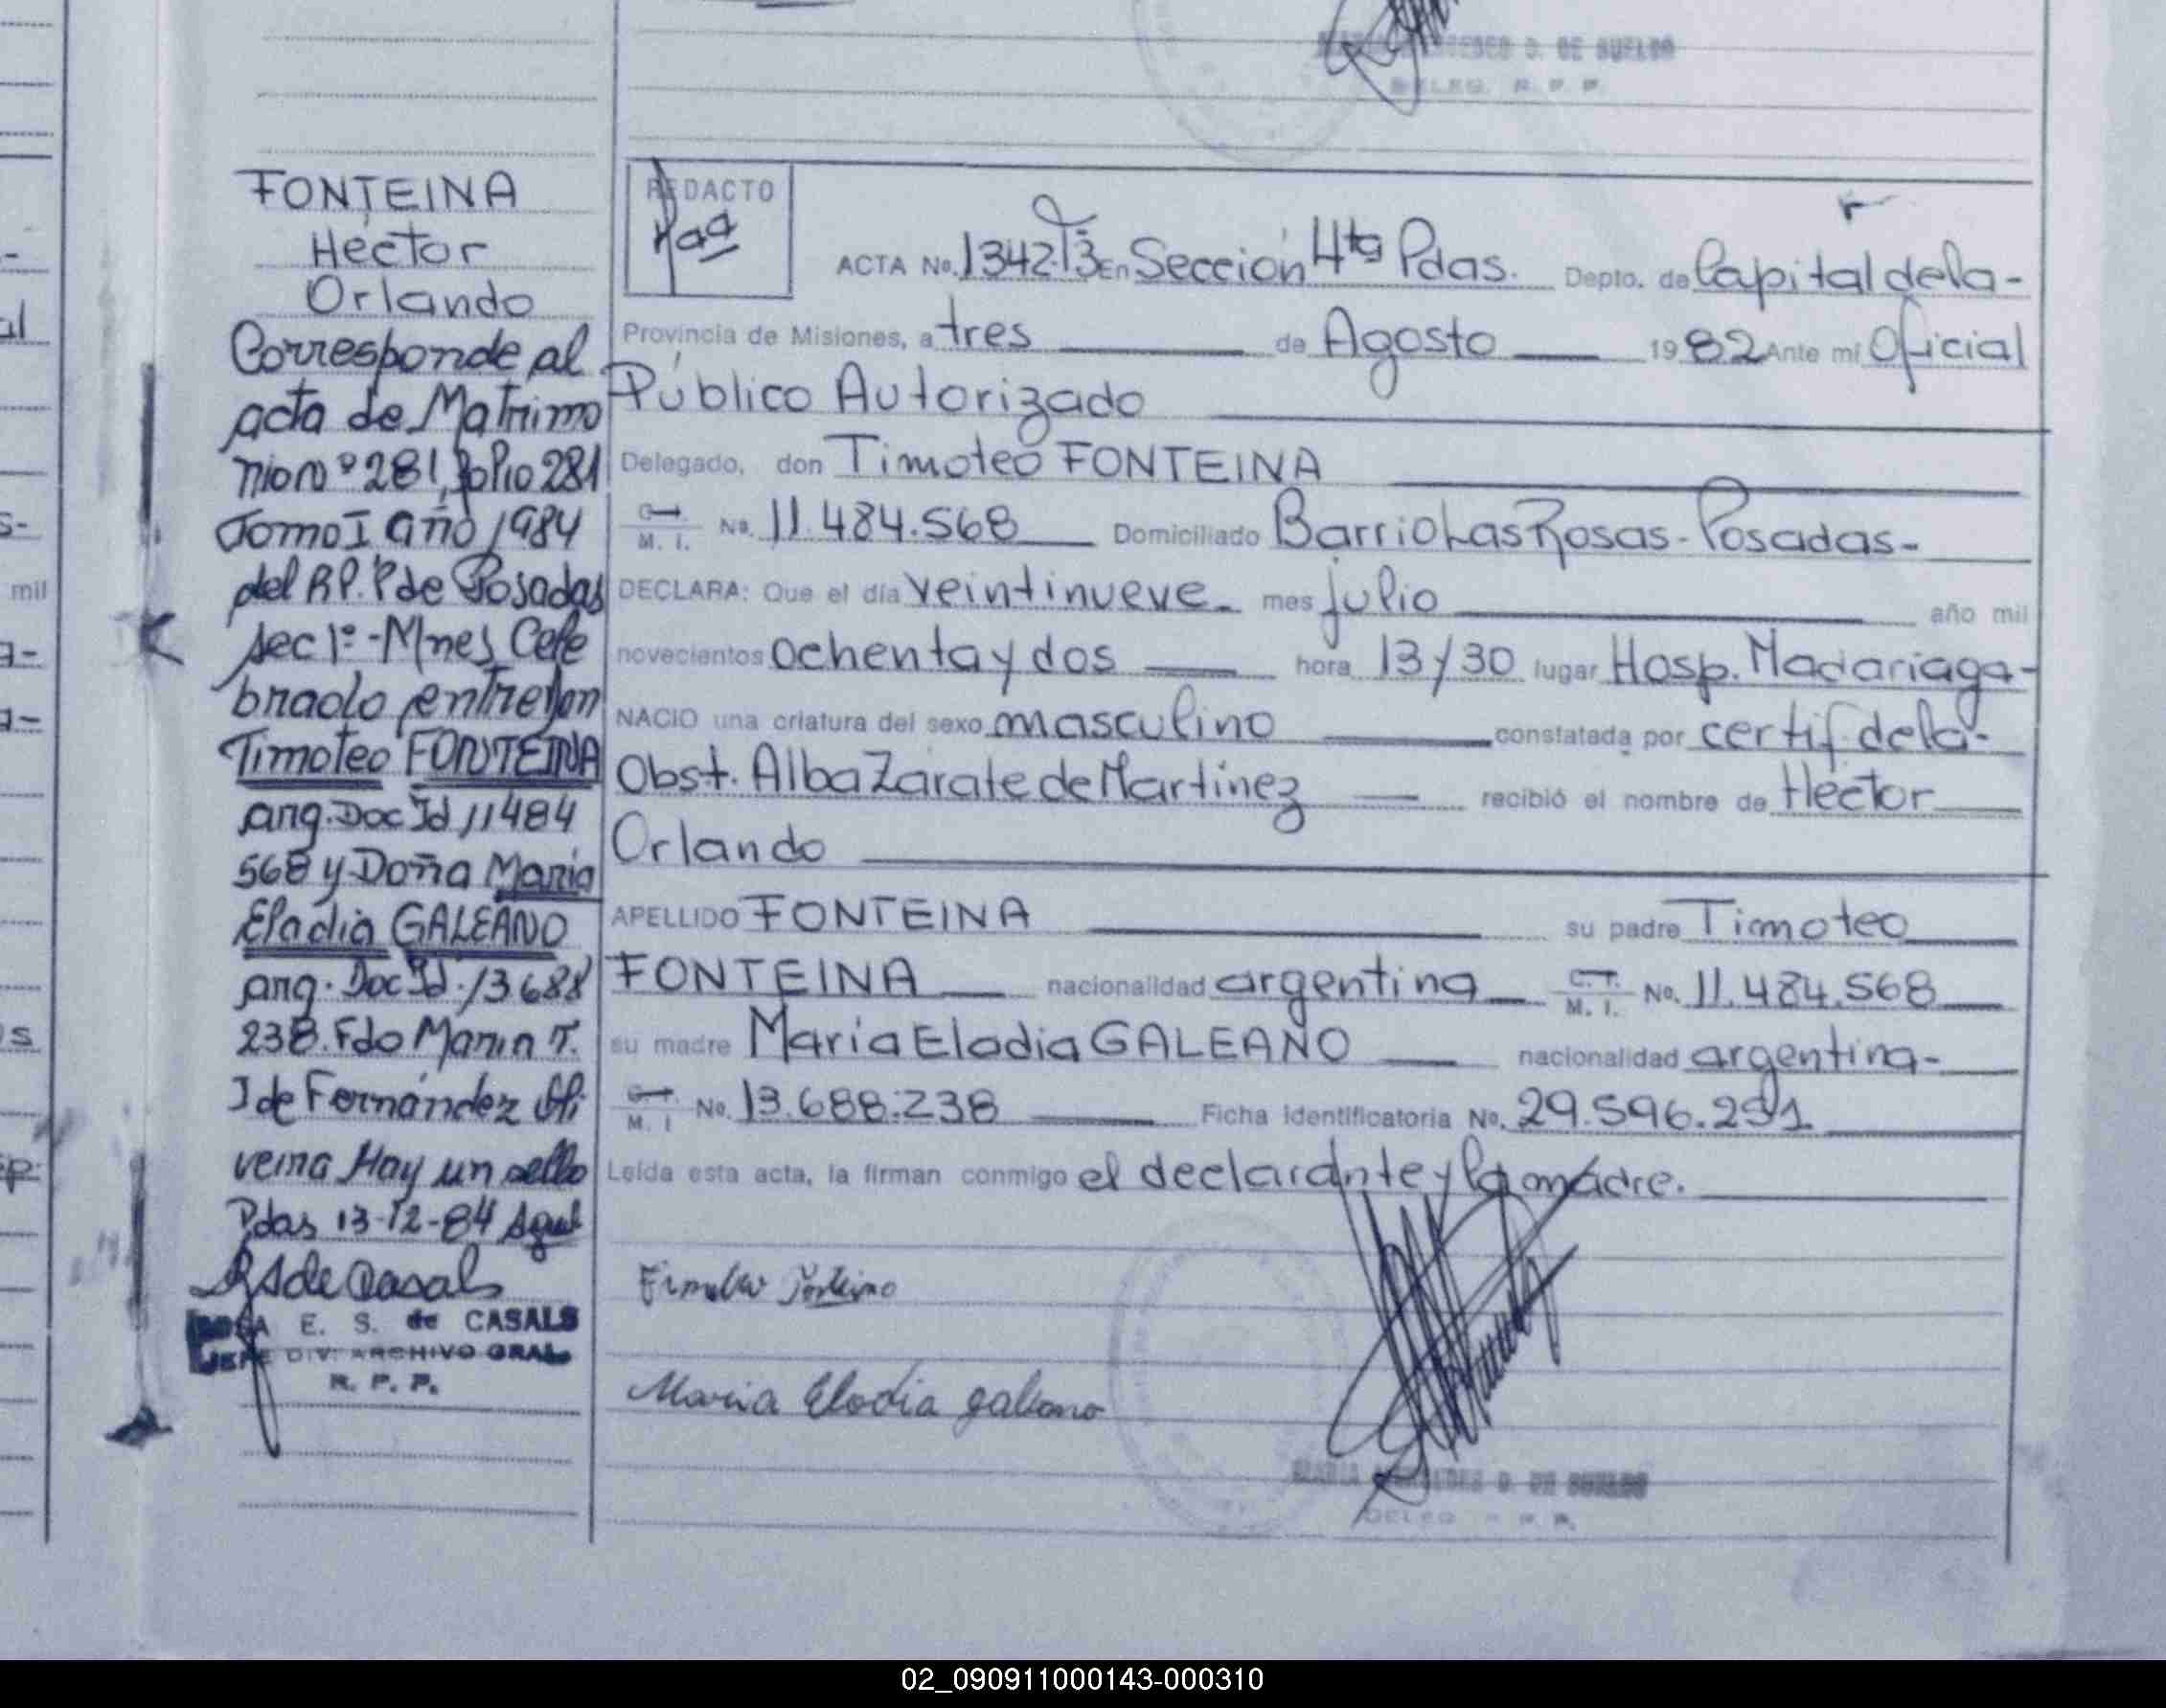 DE SUELDO
DELEG. R. P. P.
FONTEINA
Héctor
Orlando
Corresponde al
acta de Matrimo
nio Nº 281, folio 281
Tomo I año 1984
del R.P.P de Posadas
sec 1º - Mnes Cele
brado entre Don
Timoteo FONTEINA
arg. Doc Id 11484
568 y Doña Maria
Eladia GALEANO
arg. Doc Id. 13688
238. Fdo Marin T.
I de Fernández Oli
veira Hay un sello
Pdas 13-12-84
de Casals
ROSA E. S. de CASALS
JEFE DIV. ARCHIVO GRAL
R. P. P.
REDACTO
ACTA No. 1342 T3 En Sección 4ta Pdas. Depto. de Capital de la-
Provincia de Misiones, a tres de Agosto 1982 Ante mí Oficial
Público Autorizado
Delegado, don Timoteo FONTEINA
M. I. No. 11.484.568 Domiciliado Barrio Las Rosas - Posadas-
DECLARA: Que el día veintinueve mes julio año mil
novecientos ochenta y dos hora 13/30 lugar Hosp. Madariaga-
NACIO una criatura del sexo masculino constatada por certif. de la-
Obst. Alba Zarate de Martinez recibió el nombre de Héctor
Orlando
APELLIDO FONTEINA su padre Timoteo
FONTEINA nacionalidad argentina C. I. M. I. No. 11.484.568
su madre María Elodia GALEANO nacionalidad argentina-
M. I No. 13.688.238 Ficha Identificatoria No. 29.596.291
Leída esta acta, la firman conmigo el declarante y la madre.
Maria Elodia galeano
MARIA MERCEDES D. DE SUELDO
DELEG R. P. P.
mil
02_090911000143-000310